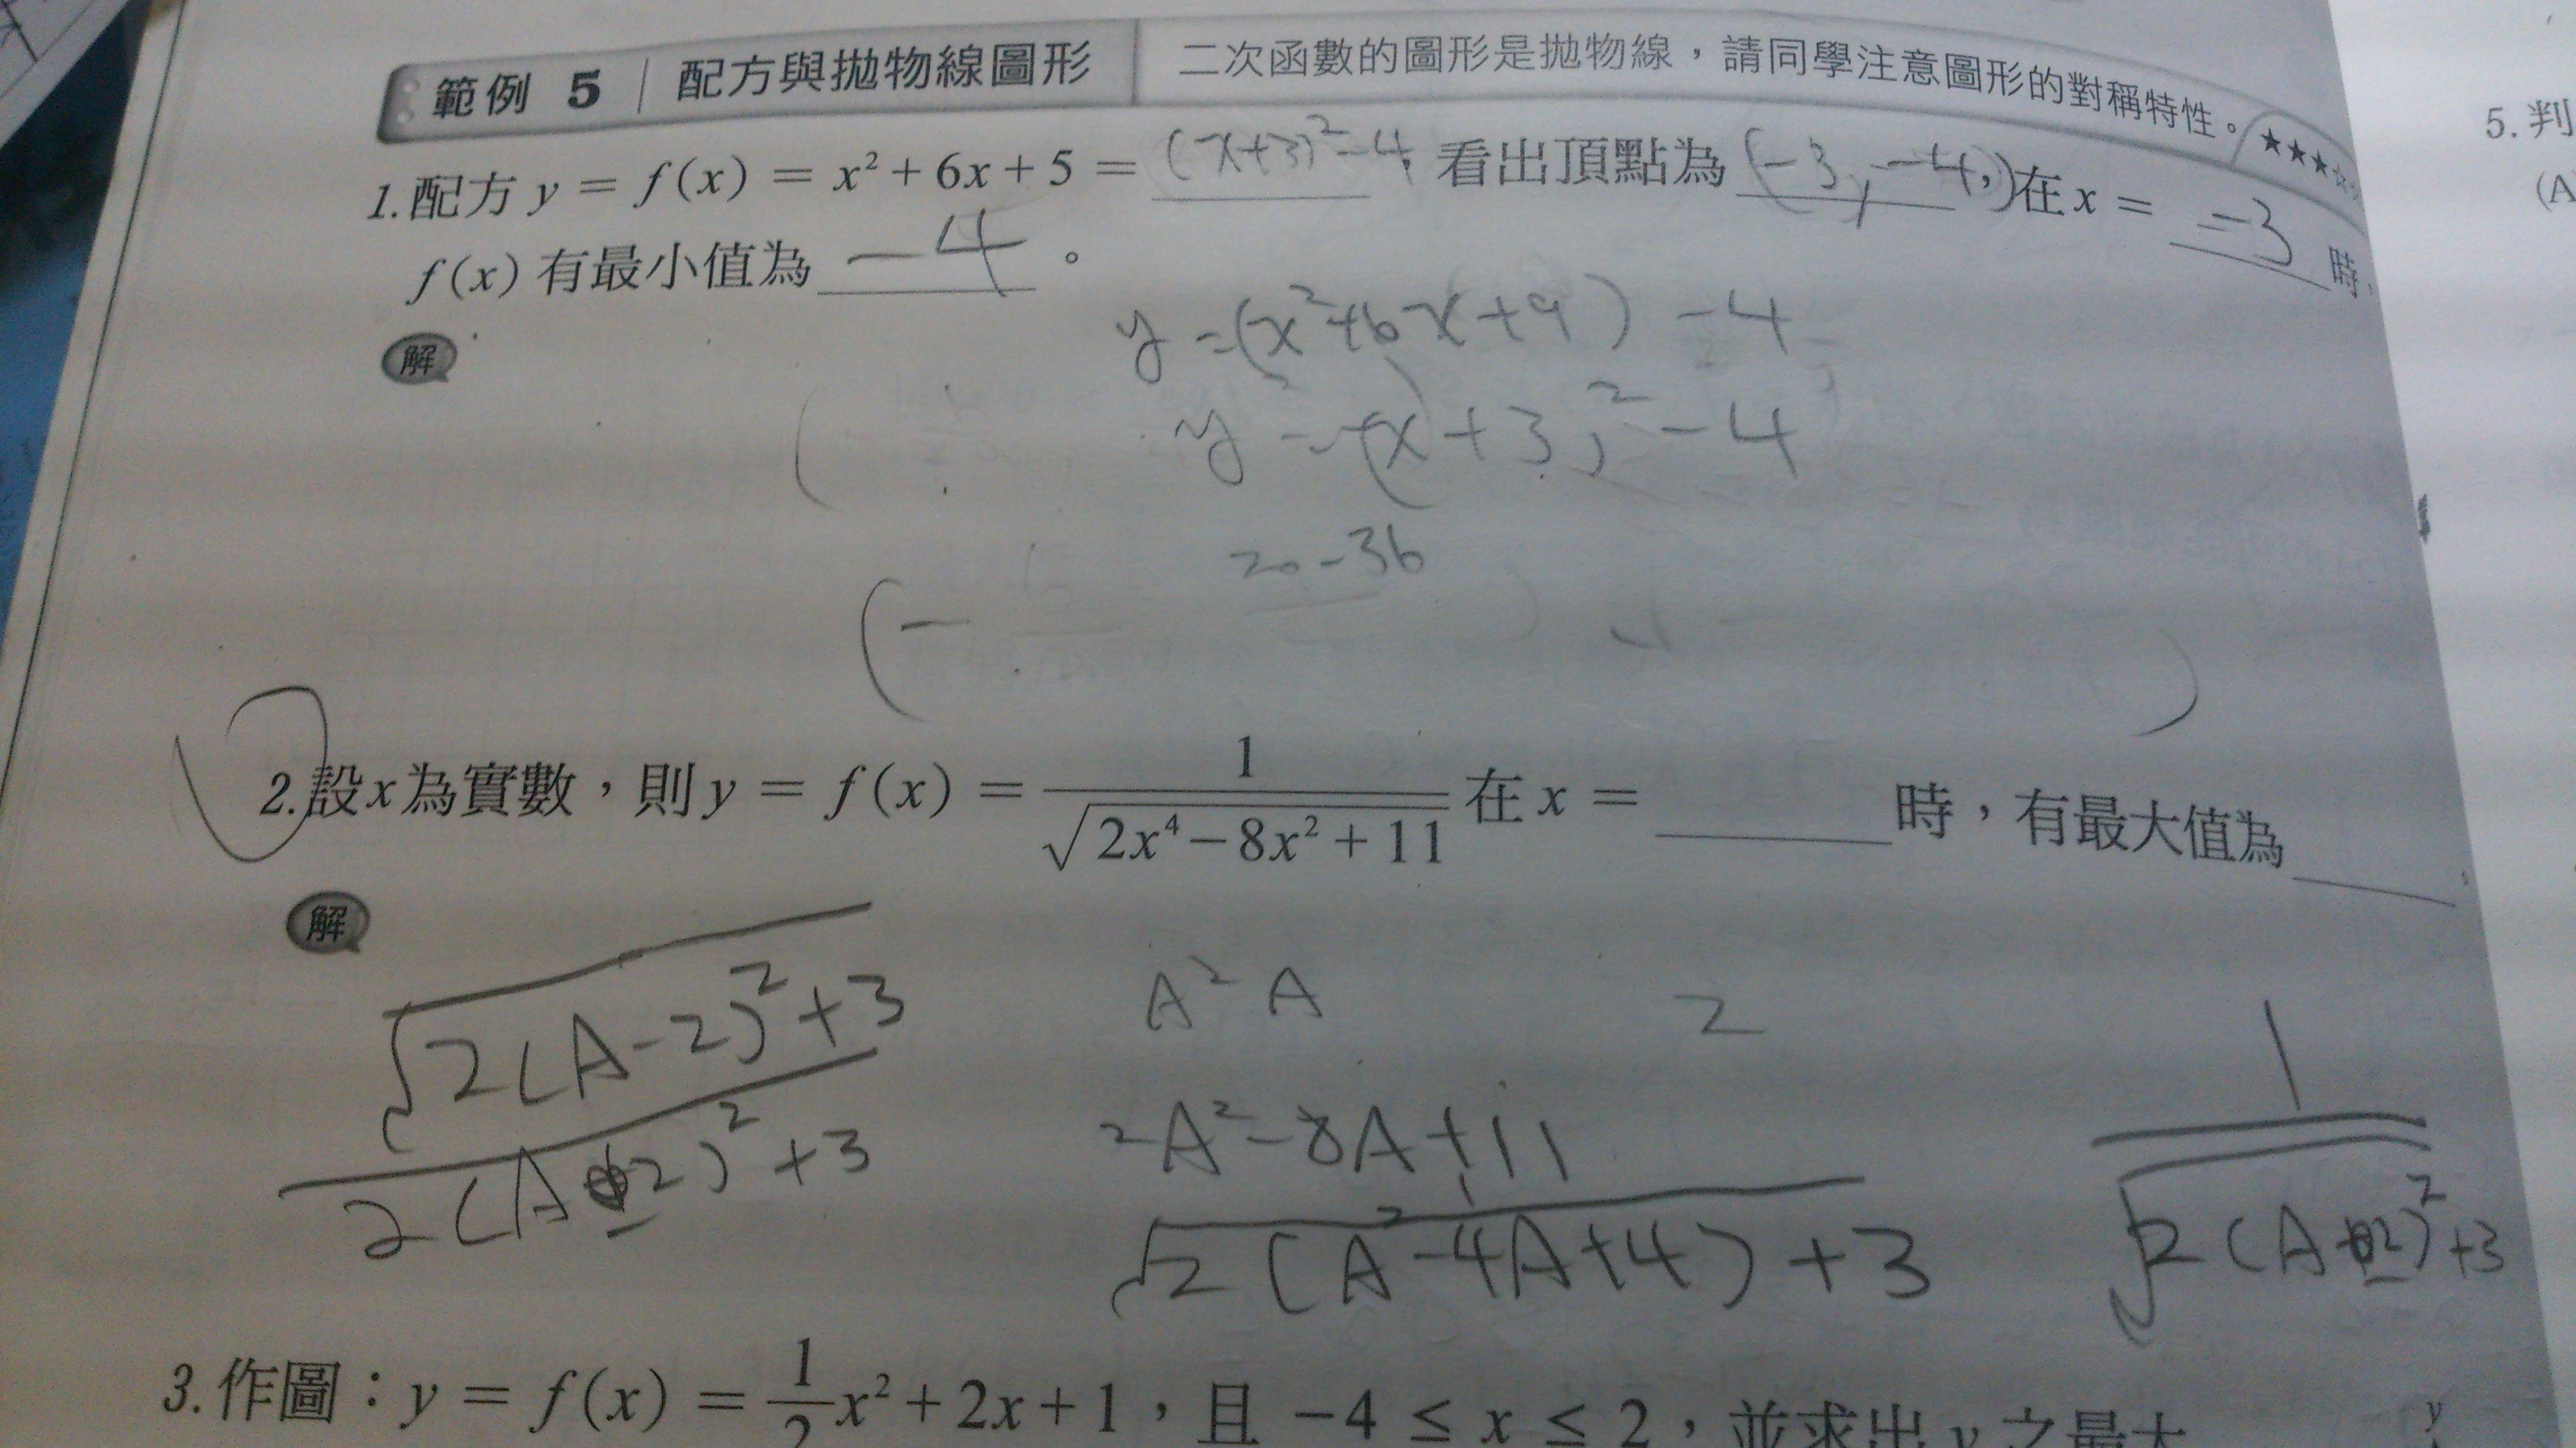 範例 5 | 配方與拋物線圖形 二次函數的圖形是拋物線，請同學注意圖形的對稱特性。★★★☆☆
1.配方 y = f(x) = x² + 6x + 5 = (x+3)²-4, 看出頂點為 (-3, -4), 在 x = -3 時,
f(x) 有最小值為 -4 。
解
y = (x²+6x+9) -4
y = (x+3)² -4
20-36
2.設 x 為實數，則 y = f(x) = 1/√(2x⁴ − 8x² + 11) 在 x = ____ 時，有最大值為 ____
解
A² A 2
√(2(A-2)²+3)
2(A-2)²+3
2A²-8A+11
√(2(A²-4A+4)+3)
1/√(2(A-2)²+3)
3.作圖：y = f(x) = 1/2 x² + 2x + 1，且 −4 ≤ x ≤ 2，並求出 y 之最大
y
5.判
(A